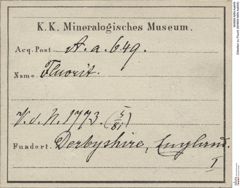 K. K. Mineralogisches Museum.
Acq. Post A. a. 649.
Name Fluorit.
V. d. N. 1773. (5/81)
Fundort. Derbyshire, England.
1